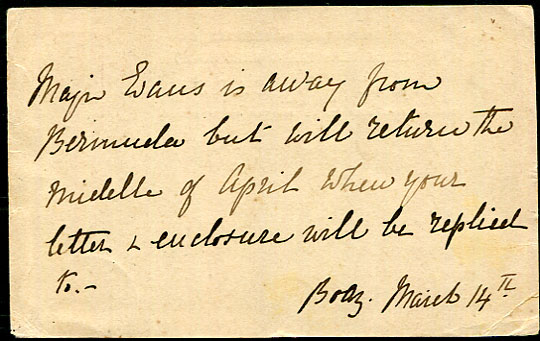 Major Evans is away from
Bermuda but will return the
middle of April when your
letter & enclosure will be replied
to.-
Boaz. March 14th